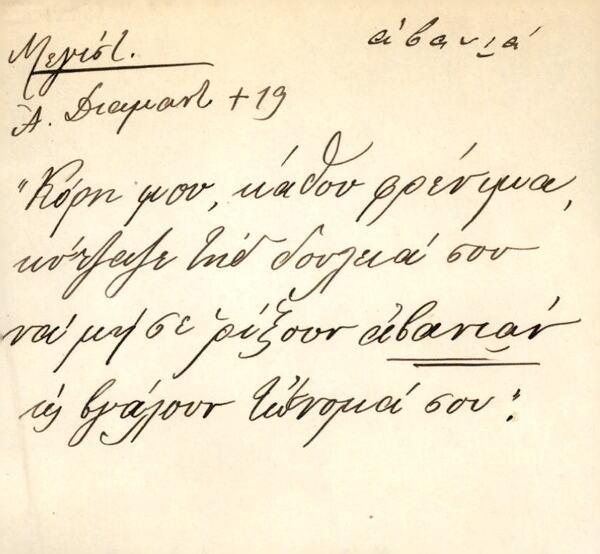 Μεγίστ.
ἀβανιά
Ἀ. Διαμαντ +19
"Κόρη μου, κάθου φρένιμα,
κύτταζε τὴδ δουλειά σου
νά μή σε ρίξουν ἀβανιάν
κῃ βγάλουν τὤνομά σου".